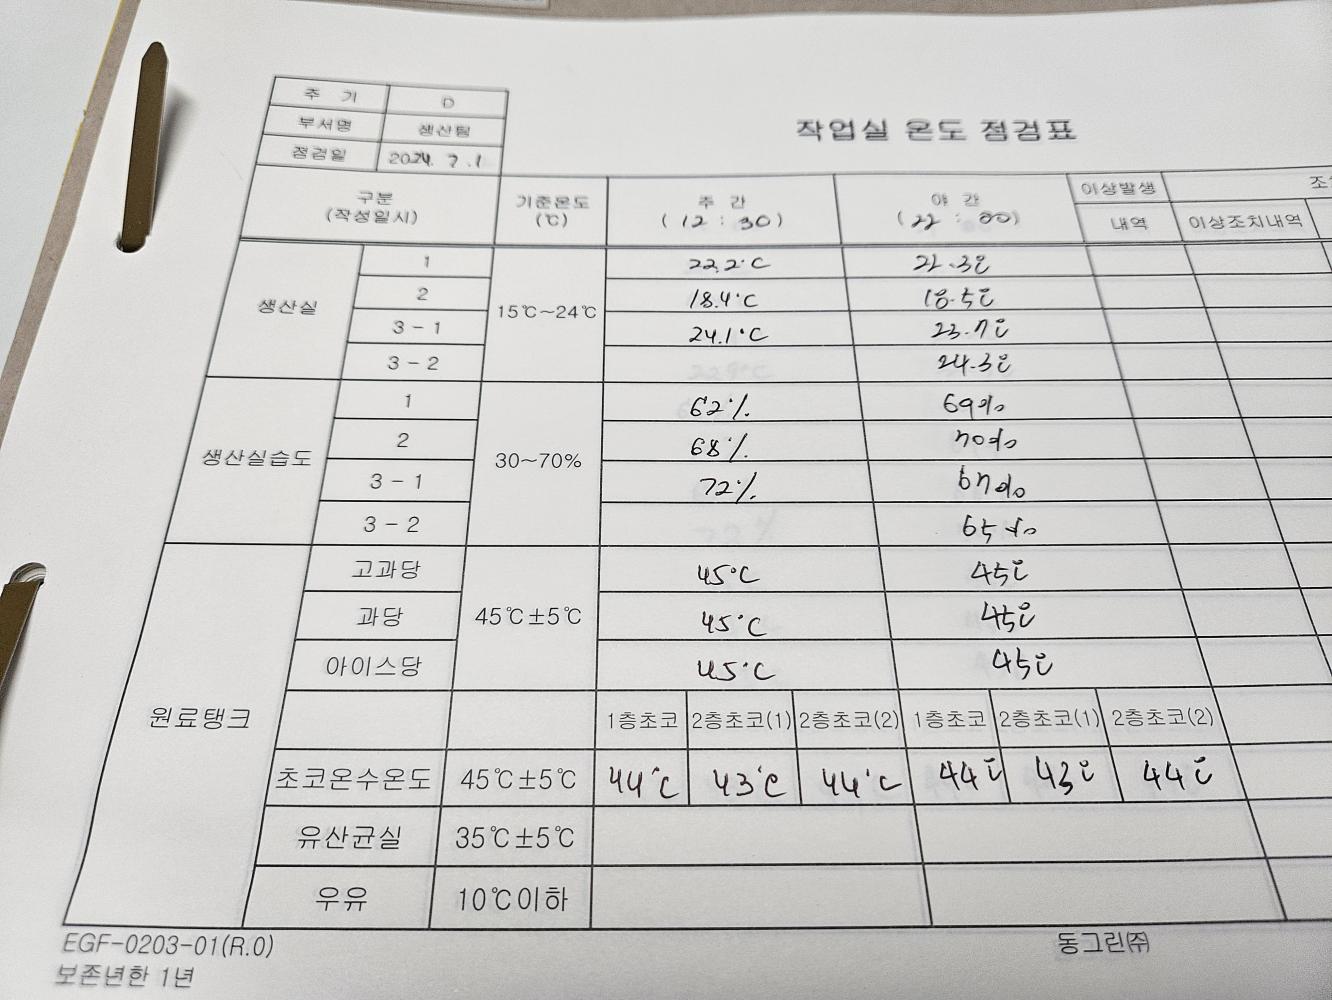 주 기 D
부서명 생산팀
점검일 2024. 7. 1
작업실 온도 점검표
구분 (작성일시) 기준온도 (℃) 주 간 (12 : 30) 야 간 (22 : 00) 이상발생
내역 이상조치내역
생산실 15℃~24℃
1 22.2℃ 21.3℃
2 18.4℃ 18.5℃
3-1 24.1℃ 23.7℃
3-2 24.3℃
생산실습도 30~70%
1 62% 69%
2 68% 70%
3-1 72% 67%
3-2 65%
원료탱크
고과당 45℃ 45℃
과당 45℃±5℃ 45℃ 45℃
아이스당 45℃ 45℃
1층초코 2층초코(1) 2층초코(2) 1층초코 2층초코(1) 2층초코(2)
초코온수온도 45℃±5℃ 44℃ 43℃ 44℃ 44℃ 43℃ 44℃
유산균실 35℃±5℃
우유 10℃이하
EGF-0203-01(R.0) 동그린㈜
보존년한 1년